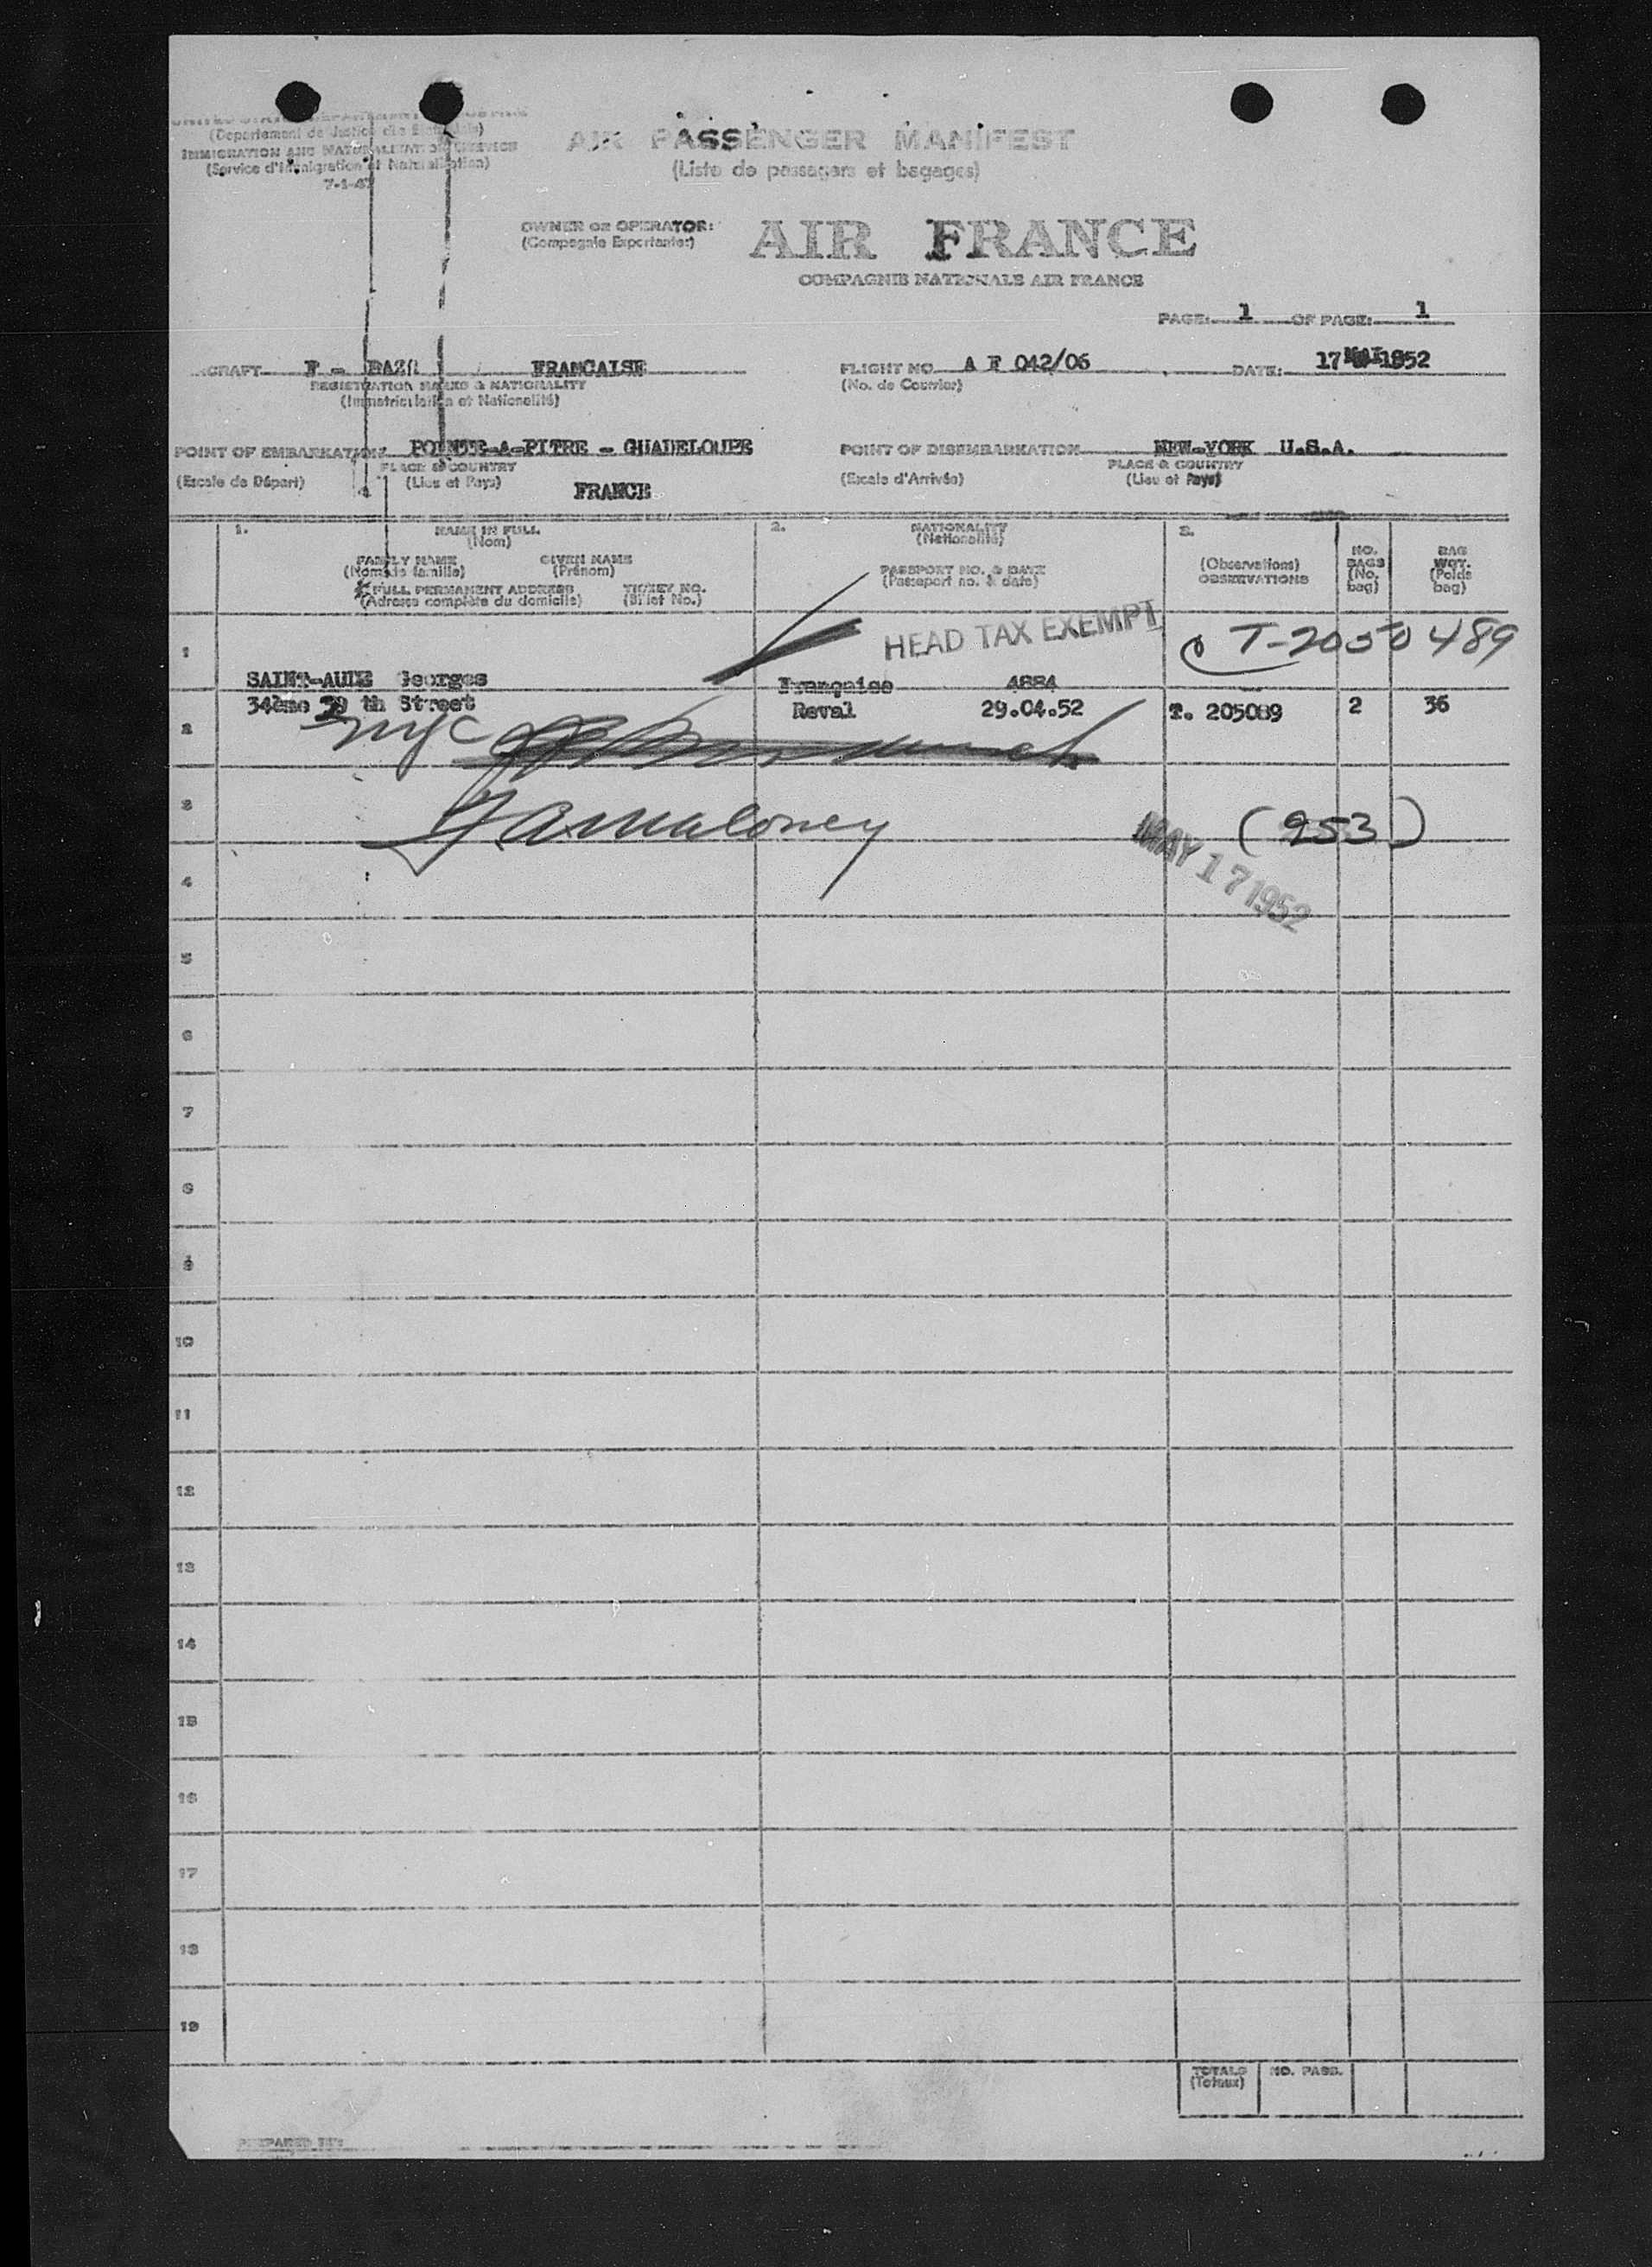 (Departement de Justice des Etats-Unis)
IMMIGRATION AND NATURALIZATION SERVICE
(Service d'Immigration et Naturalisation)
7-1-47
AIR PASSENGER MANIFEST
(Liste de passagers et bagages)
OWNER OR OPERATOR:
(Compagnie Exportante:)
AIR FRANCE
COMPAGNIE NATIONALE AIR FRANCE
PAGE: 1 OF PAGE: 1
CRAFT F - FRANCAISE
REGISTRATION MARKS & NATIONALITY
(Immatriculation et Nationalité)
FLIGHT NO. A F 042/06
(No. de Courrier)
DATE: 17 MAI 1952
POINT OF EMBARKATION POINTE-A-PITRE - GUADELOUPE
PLACE & COUNTRY
(Escale de Départ) (Lieu et Pays)
FRANCE
POINT OF DISEMBARKATION NEW-YORK U.S.A.
PLACE & COUNTRY
(Escale d'Arrivée) (Lieu et Pays)
1. NAME IN FULL
(Nom)
FAMILY NAME GIVEN NAME
(Nom de famille) (Prénom)
FULL PERMANENT ADDRESS TICKET NO.
(Adresse complète du domicile) (Billet No.)
2. NATIONALITY
(Nationalité)
PASSPORT NO. & DATE
(Passeport no. & date)
3.
(Observations)
OBSERVATIONS
NO. BAGS
(No. bag)
BAG WGT.
(Poids bag)
HEAD TAX EXEMPT
T-2050489
1
SAINT-AUDE Georges Française 4884
34ème th Street Reval 29.04.52 T. 205089 2 36
2
NYC
3
Maloney (953)
MAY 17 1952
4
5
6
7
8
9
10
11
12
13
14
15
16
17
18
19
TOTALS NO. PASS.
(Totaux)
PREPARED BY: